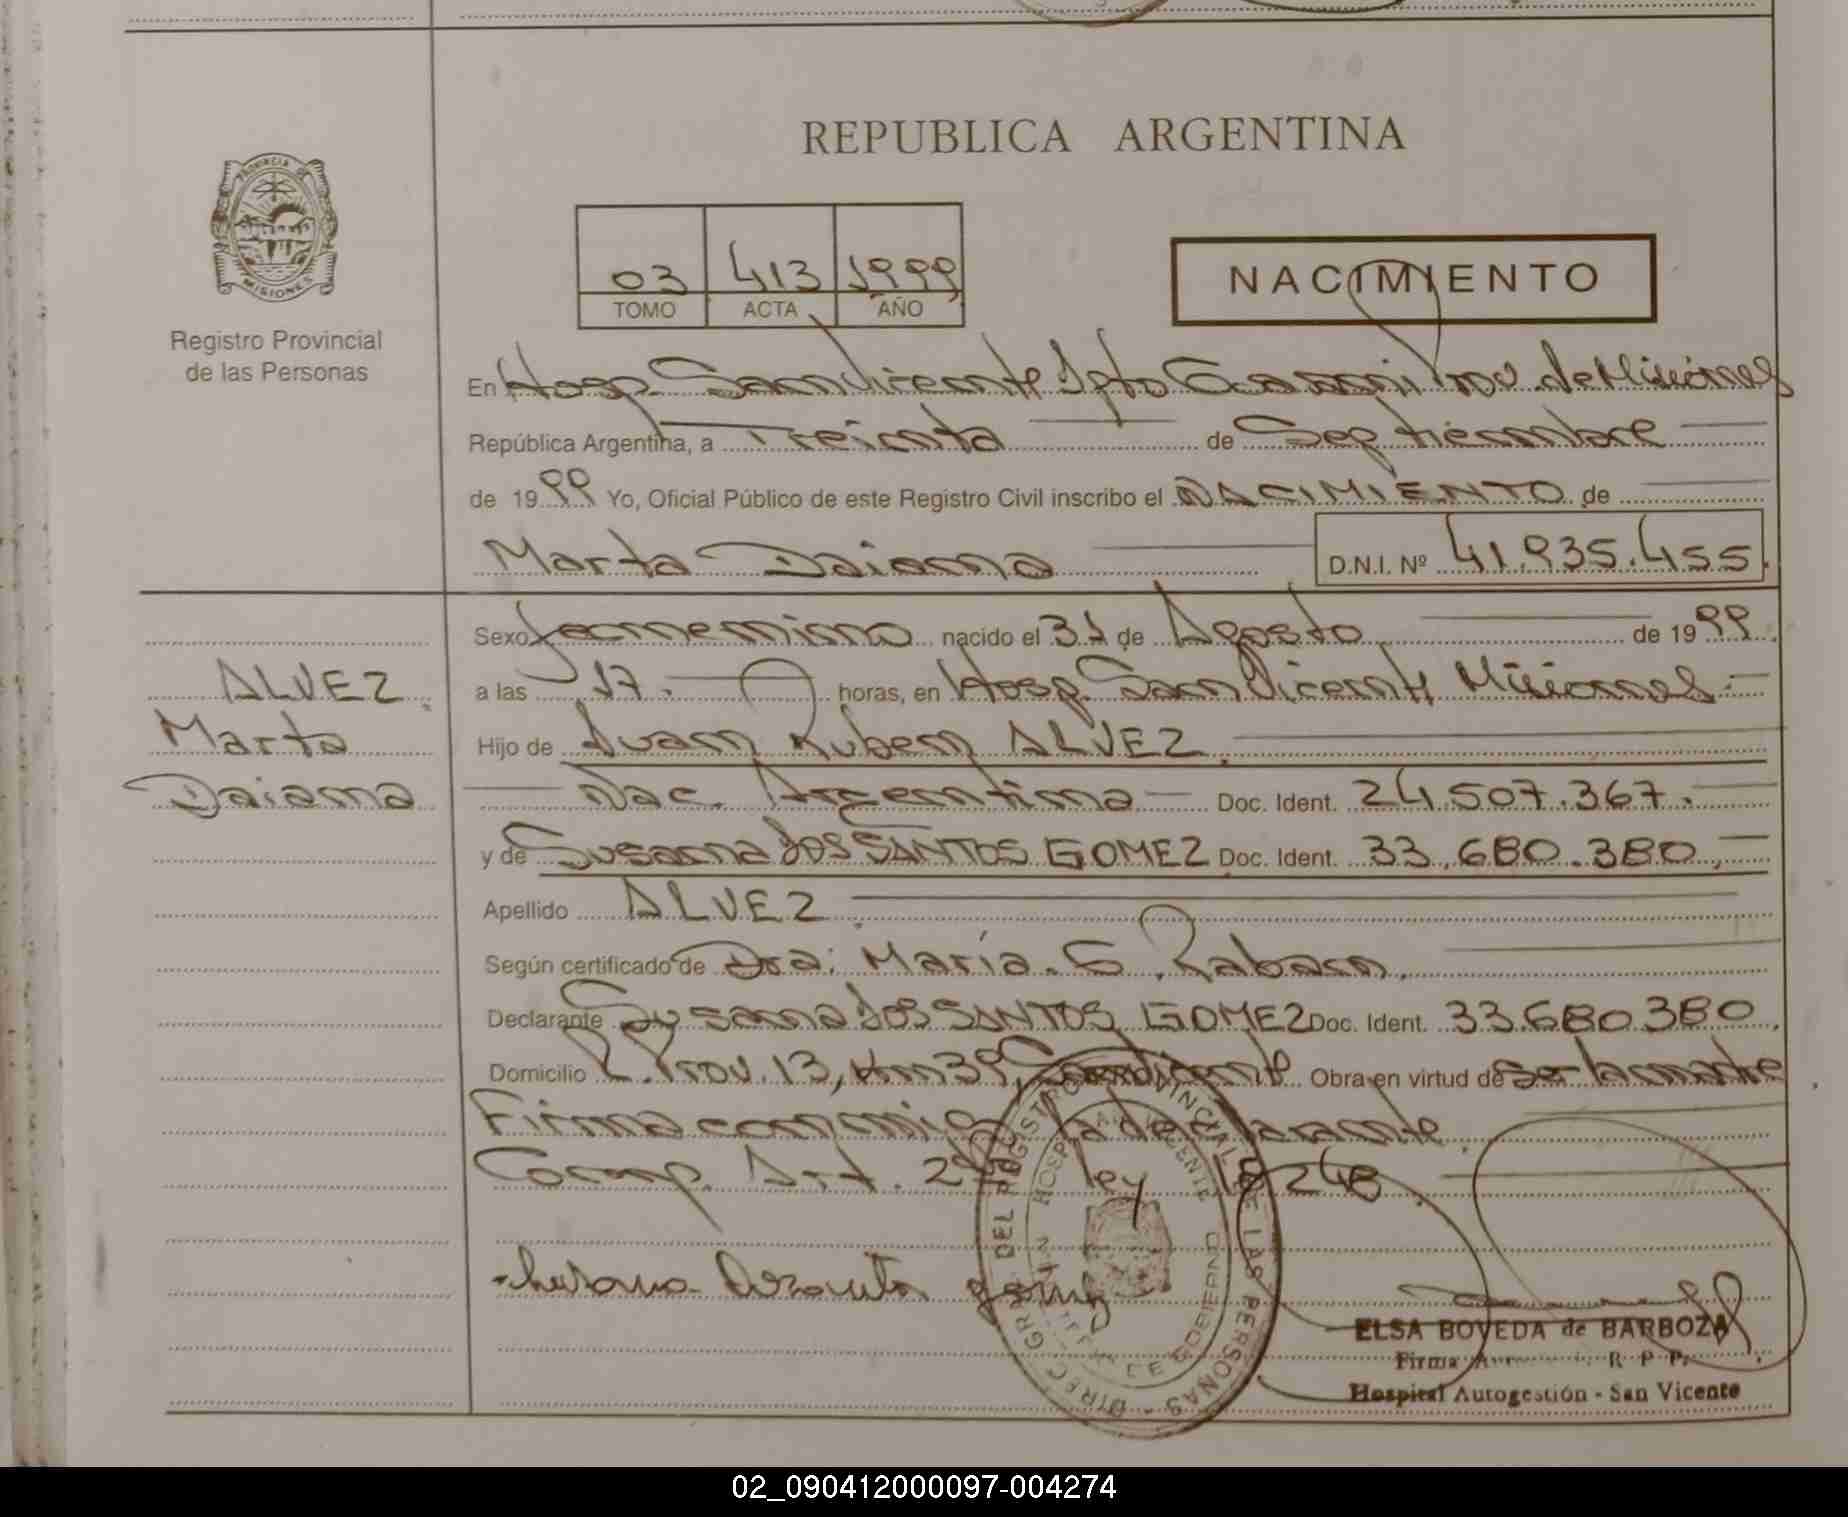 REPUBLICA ARGENTINA
PROVINCIA DE MISIONES
Registro Provincial
de las Personas
03 413 1999
TOMO ACTA AÑO
NACIMIENTO
En Hosp. San Vicente Dpto Guaraní Prov. de Misiones
República Argentina, a Treinta de Septiembre
de 1999 Yo, Oficial Público de este Registro Civil inscribo el NACIMIENTO de
Marta Daiana D.N.I. Nº 41.935.455
Sexo femenino nacido el 31 de Agosto de 1999
a las 17. horas, en Hosp. San Vicente Misiones
Hijo de Juan Ruben ALVEZ
Nac. Argentina Doc. Ident. 24.507.367.
y de Susana dos SANTOS GOMEZ Doc. Ident. 33.680.380
Apellido ALVEZ
Según certificado de Dra: María. S. Rabaca
Declarante Susana dos SANTOS GOMEZ Doc. Ident. 33.680.380
Domicilio R. Prov. 13, Km 39, San Vicente Obra en virtud de ser la madre
Firma conmigo la declarante
Comp. Art. 29 ley 18248
ALVEZ
Marta
Daiana
DIREC. GRAL. DEL REGISTRO PROVINCIAL DE LAS PERSONAS
HOSPITAL SAN VICENTE
DE GOBIERNO
ELSA BOVEDA de BARBOZA
Firma R. P. P.
Hospital Autogestión - San Vicente
02_090412000097-004274